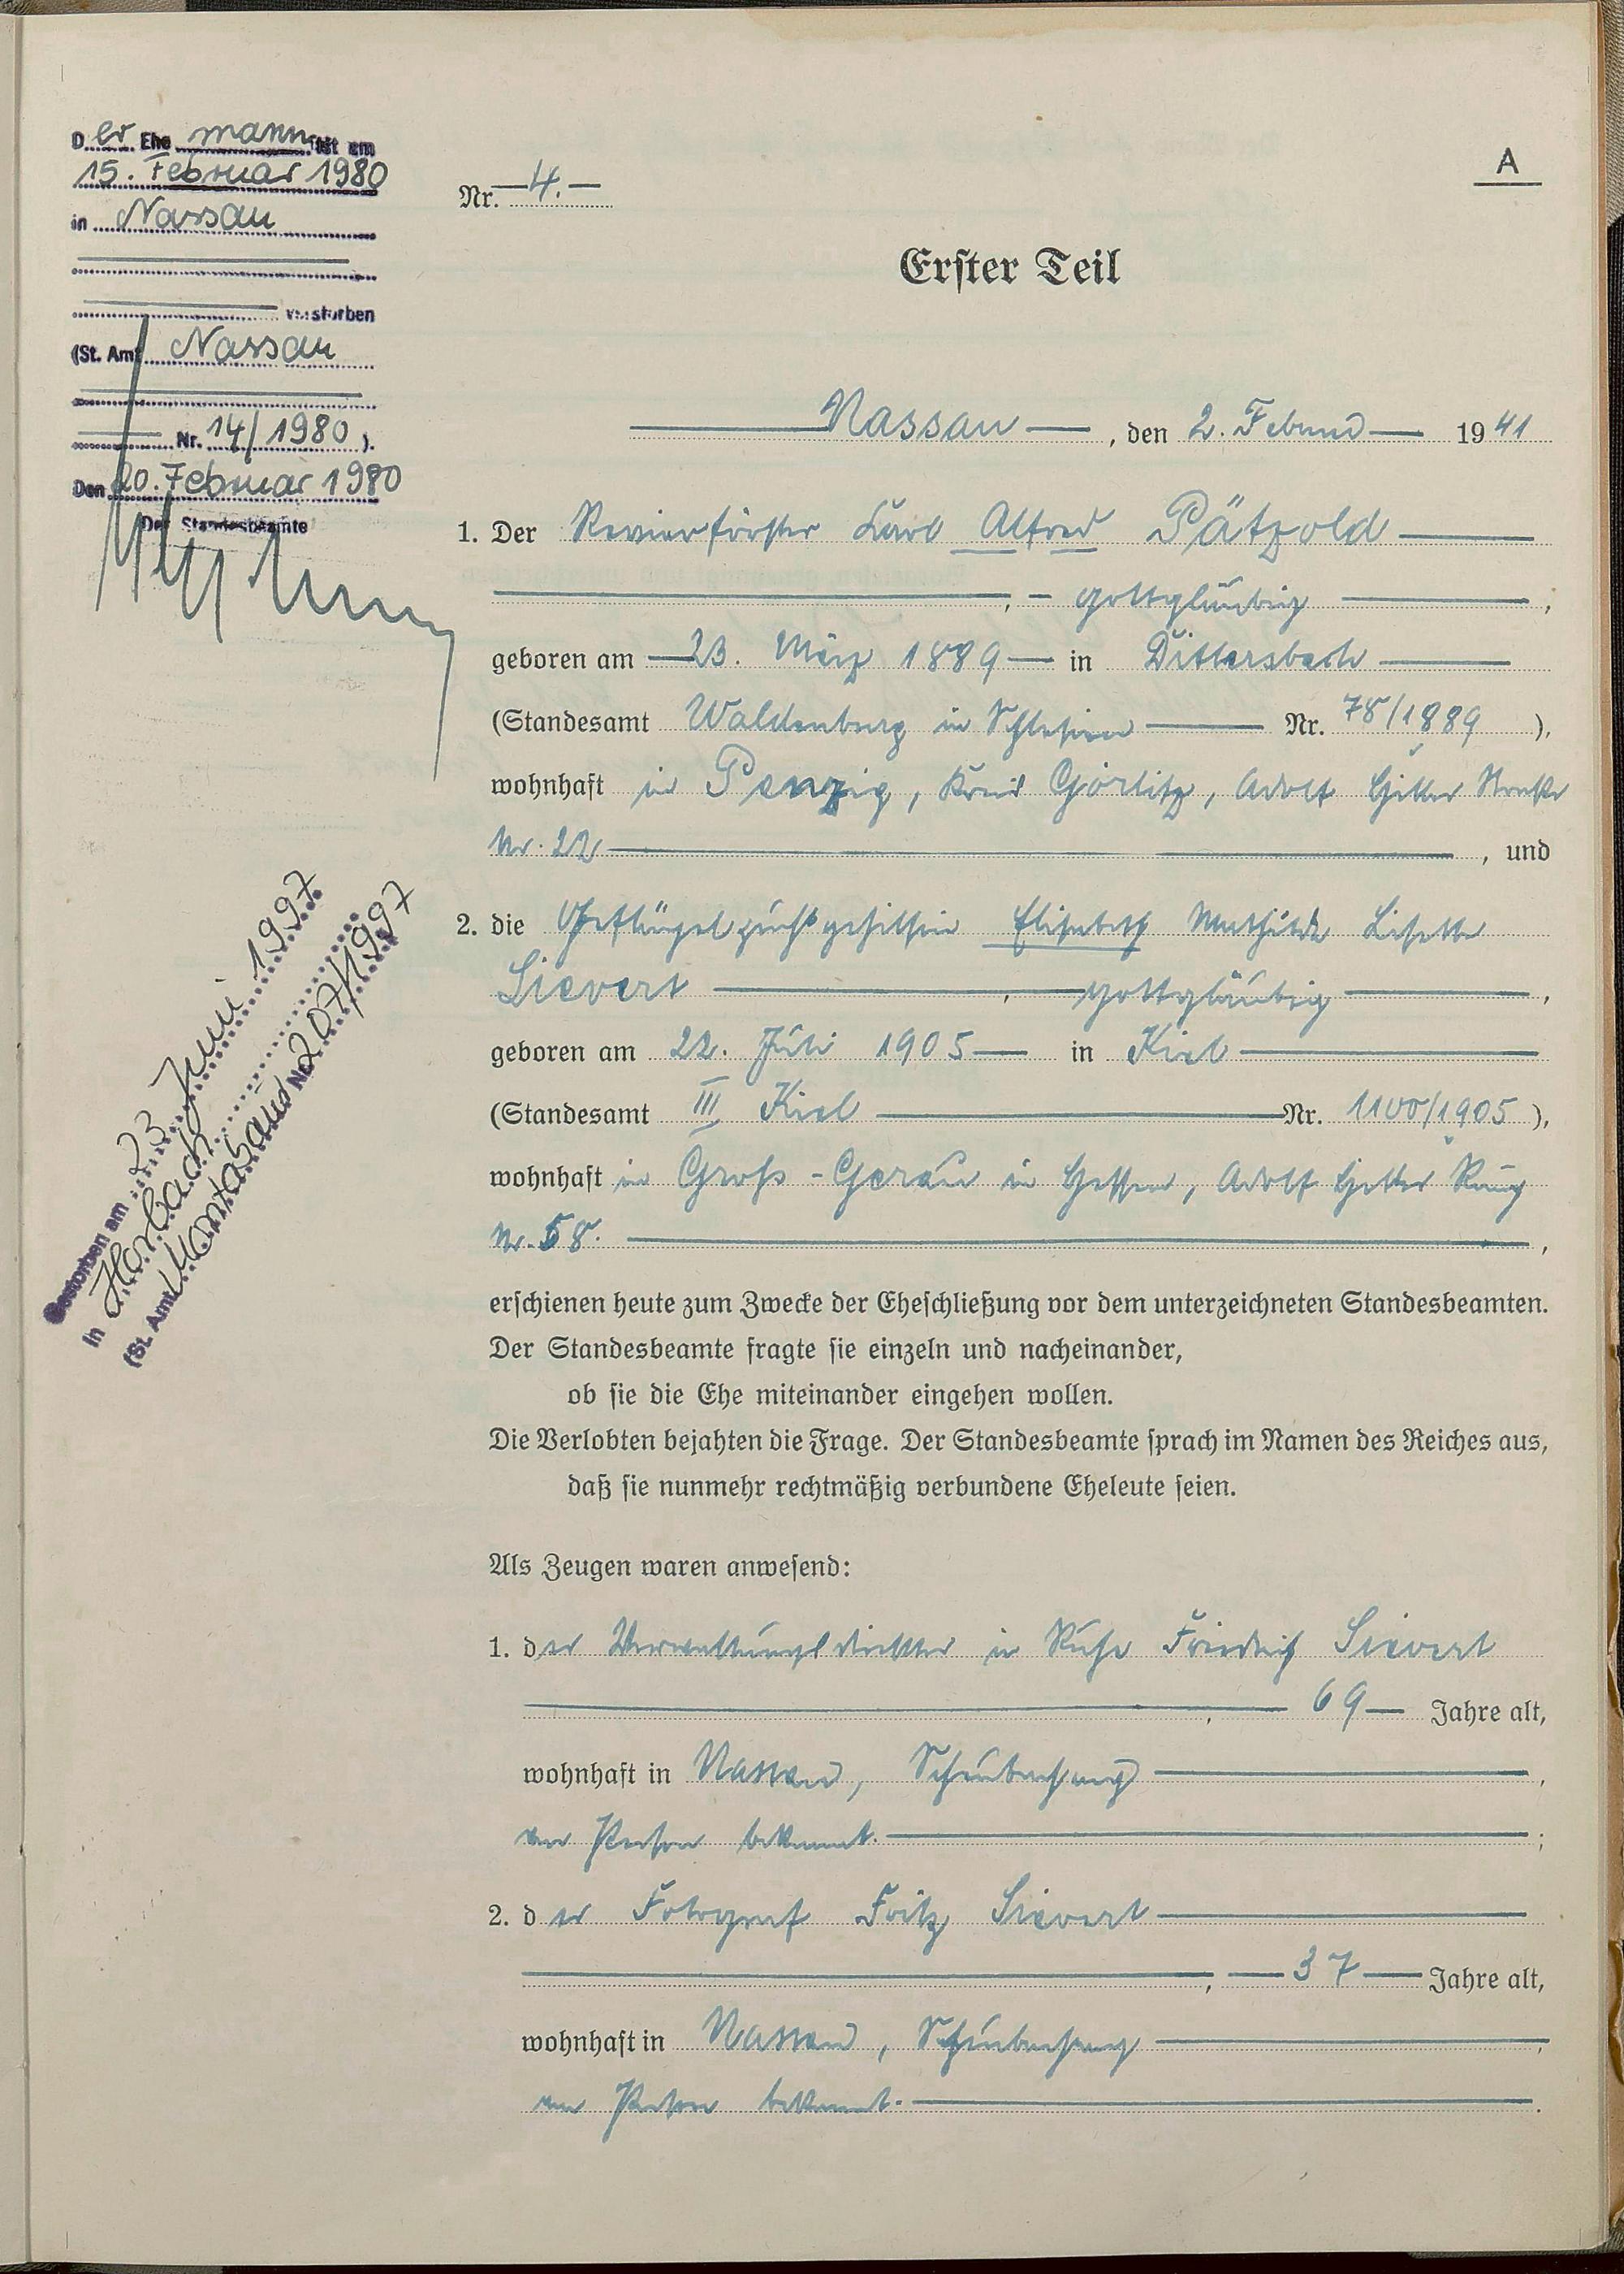 Der Ehemann ist am
15. Februar 1980
in Nassau
verstorben
(St. Amt Nassau
Nr. 14/1980 ).
Den 20. Februar 1980
Der Standesbeamte
Gestorben am 23 Juni 1997
in Horbach
(St. Amt Montabaur Nr. 207/1997
A
Nr. 4.
Erster Teil
Nassau , den 2. Februar 1941
1. Der Revierförster Karl Alfred Pätzold
, gottgläubig ,
geboren am 23. März 1889 in Dittersbach
(Standesamt Waldenburg in Schlesien Nr. 78/1889 ),
wohnhaft in Penzig, Kreis Görlitz, Adolf Hitler Straße
Nr. 22 , und
2. die Geflügelzuchtgehilfin Elisabeth Mathilde Lisette
Sievert , gottgläubig ,
geboren am 22. Juli 1905 in Kiel
(Standesamt III Kiel Nr. 1100/1905 ),
wohnhaft in Groß-Gerau in Hessen, Adolf Hitler Ring
Nr. 58. ,
erschienen heute zum Zwecke der Eheschließung vor dem unterzeichneten Standesbeamten.
Der Standesbeamte fragte sie einzeln und nacheinander,
ob sie die Ehe miteinander eingehen wollen.
Die Verlobten bejahten die Frage. Der Standesbeamte sprach im Namen des Reiches aus,
daß sie nunmehr rechtmäßig verbundene Eheleute seien.
Als Zeugen waren anwesend:
1. der Verwaltungsdirektor in Ruhe Friedrich Sievert
, 69 Jahre alt,
wohnhaft in Nassau, ,
von Person bekannt. ;
2. der Fotograf Fritz Sievert
, 37 Jahre alt,
wohnhaft in Nassau, ,
von Person bekannt. .